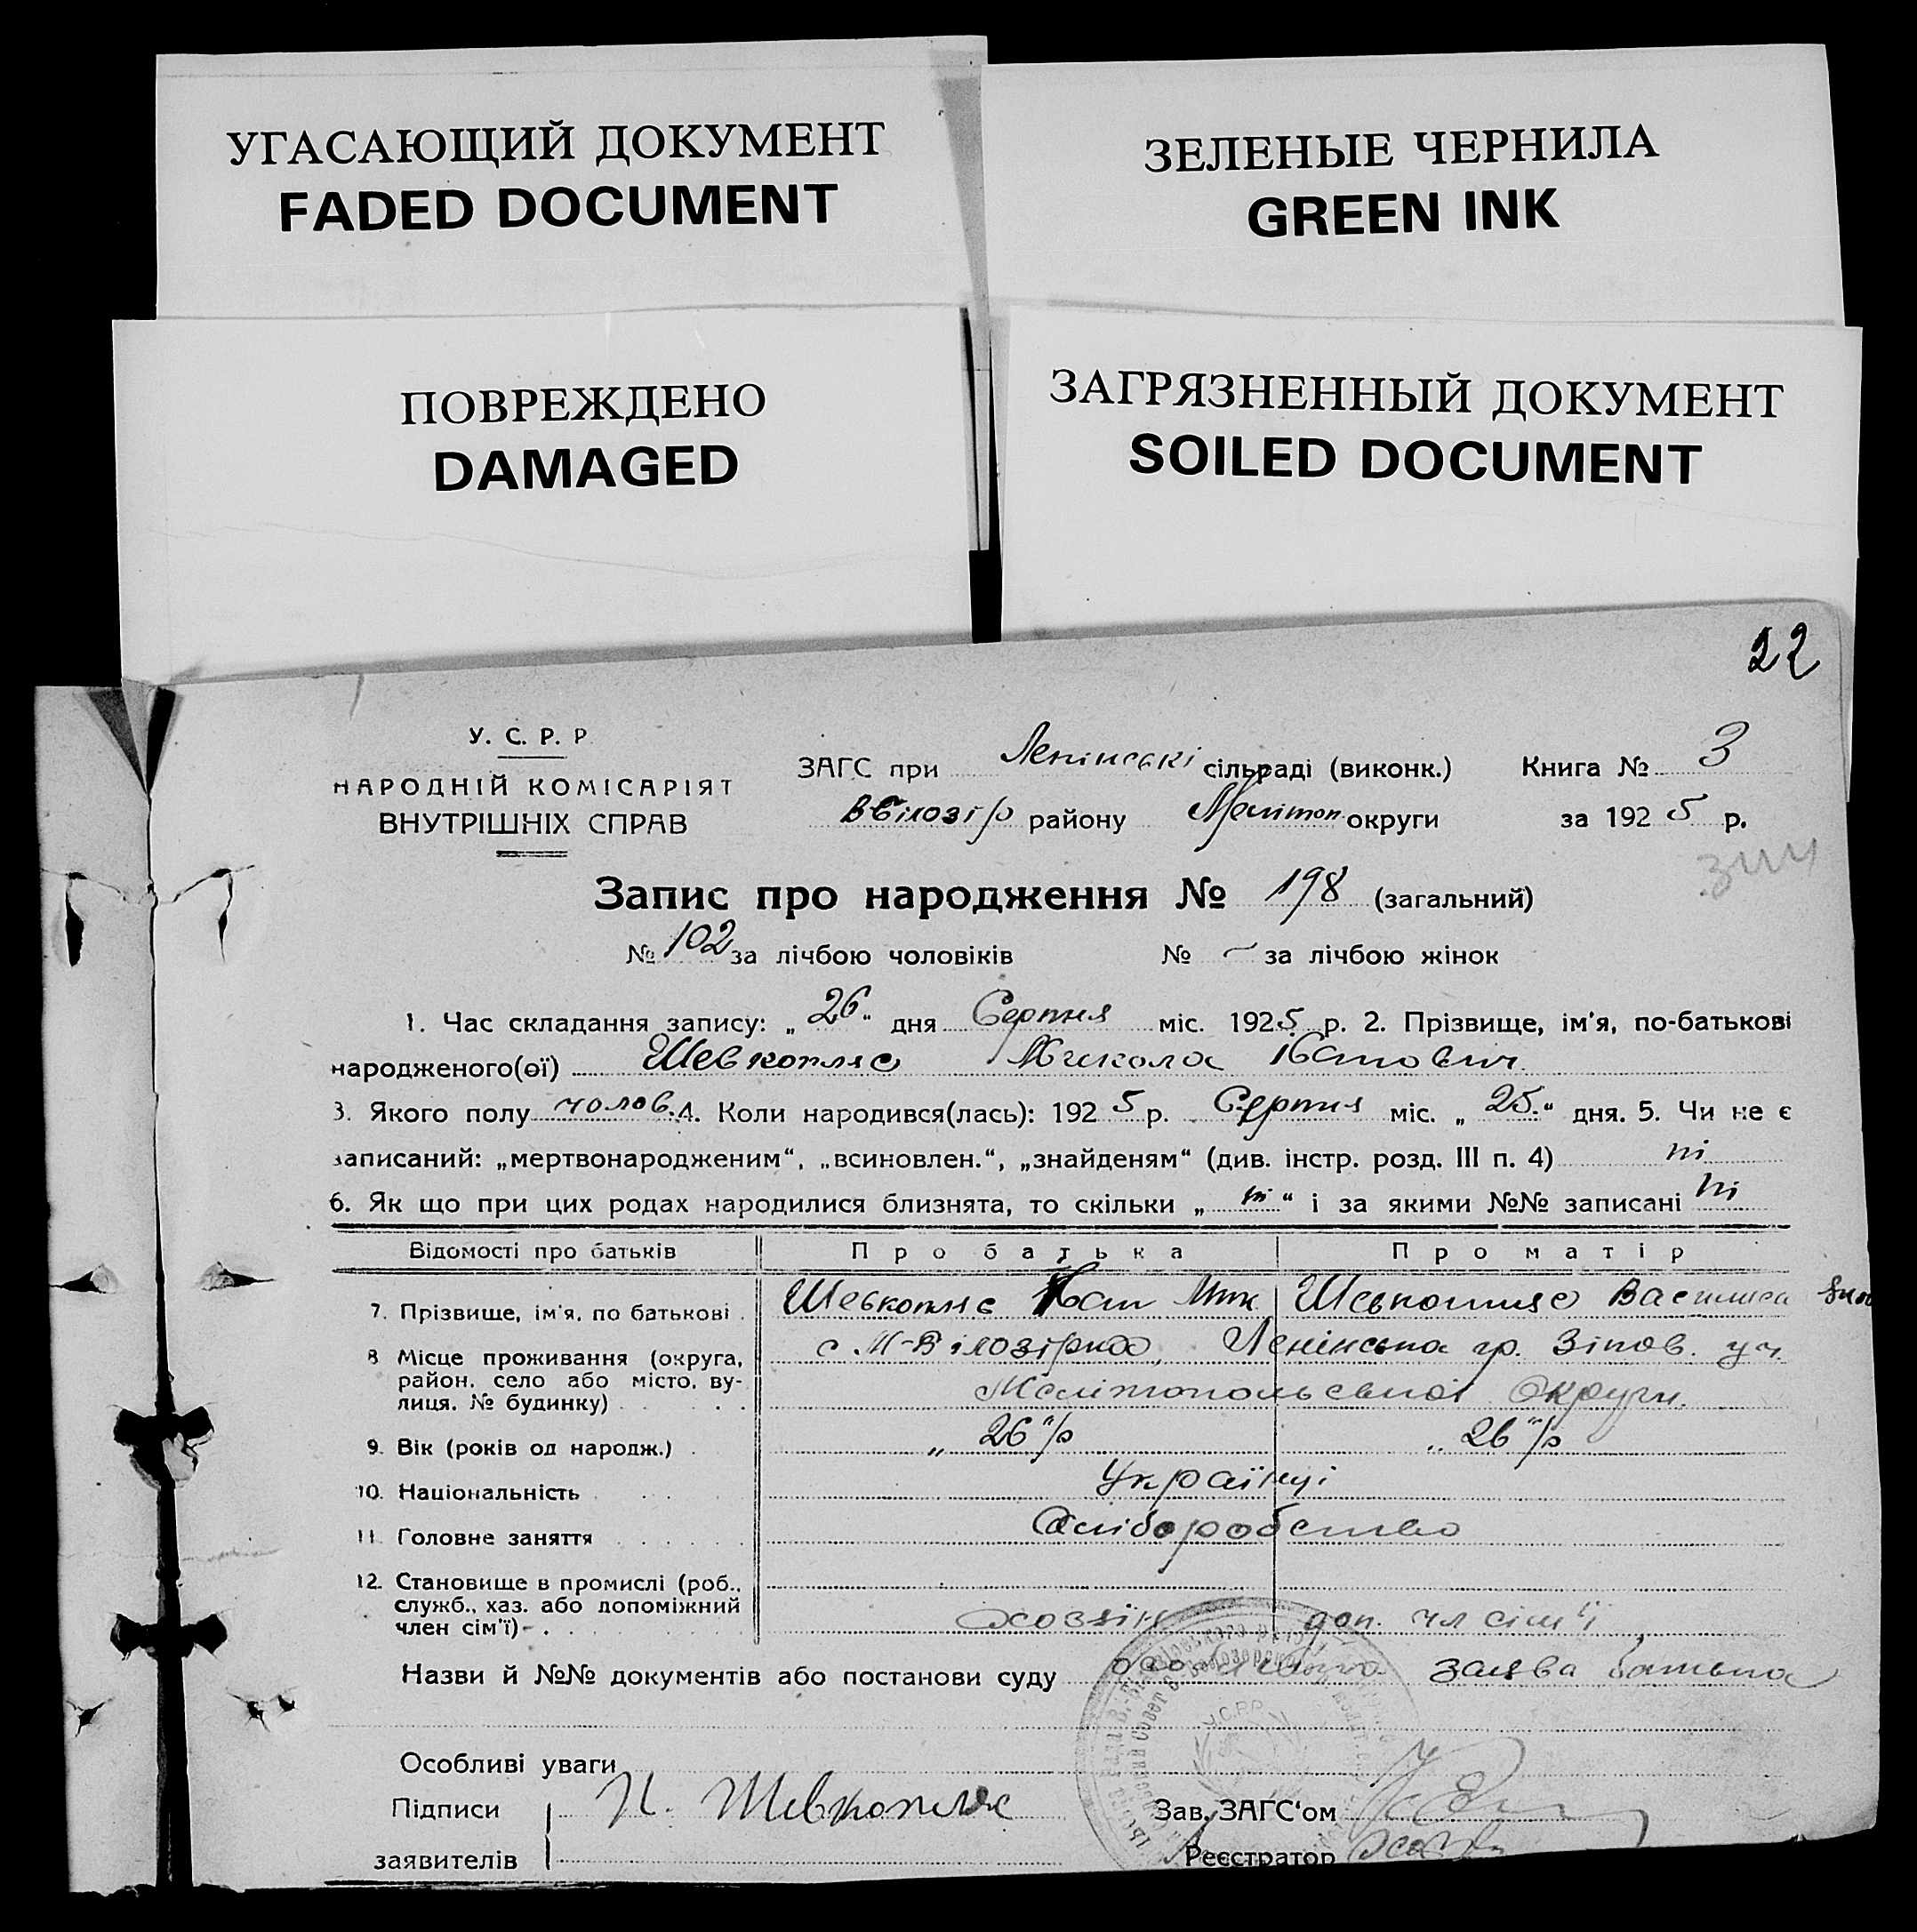 УГАСАЮЩИЙ ДОКУМЕНТ
FADED DOCUMENT
ЗЕЛЕНЫЕ ЧЕРНИЛА
GREEN INK
ПОВРЕЖДЕНО
DAMAGED
ЗАГРЯЗНЕННЫЙ ДОКУМЕНТ
SOILED DOCUMENT
22
У. С. Р. Р
НАРОДНІЙ КОМІСАРІЯТ
ВНУТРІШНІХ СПРАВ
ЗАГС при Ленінські сільраді (виконк.) Книга № 3
ВБілозір району Мелітоп. округи за 1925 р.
Запис про народження № 198 (загальний)
№ 102 за лічбою чоловіків № – за лічбою жінок
1. Час складання запису: „26“ дня Серпня міс. 1925 р. 2. Прізвище, ім'я, по-батькові
народженого(ої) Шевкопляс Микола
3. Якого полу чолов. 4. Коли народився(лась): 1925 р. Серпня міс. „25“ дня. 5. Чи не є
записаний: „мертвонародженим“, „всиновлен.“, „знайденям“ (див. інстр. розд. III п. 4) ні
6. Як що при цих родах народилися близнята, то скільки „ні“ і за якими №№ записані ні
Відомості про батьків Про батька Про матір
7. Прізвище, ім'я, по батькові . Шевкопляс Шевкопляс Василиса
8 Місце проживання (округа, район, село або місто, вулиця, № будинку) с. М-Білозірка, Ленінська
Мелітопольської Округи.
9. Вік (років од народж.) . „ 26 р „ 26 р
10. Національність Українці
11. Головне заняття Хліборобство
12. Становище в промислі (роб., служб., хаз. або допоміжний член сім'ї) - . Хозяїн доп. чл сім'ї
Назви й №№ документів або постанови суду заява батька
У.С.Р.Р.
Особливі уваги
Підписи Шевкопляс Зав. ЗАГС'ом
заявителів Реєстратор